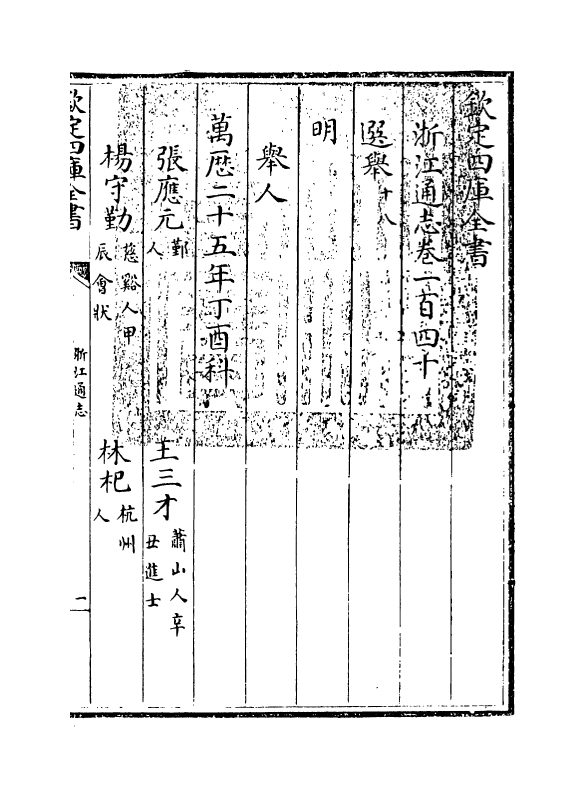 欽定四庫全書
浙江通志卷一百四十
選舉十八
明
舉人
萬厯二十五年丁酉科
張應元鄞人
王三才蕭山人辛丑進士
楊守勤慈谿人甲辰會狀
林杞杭州人
欽定四庫全書
浙江通志
一